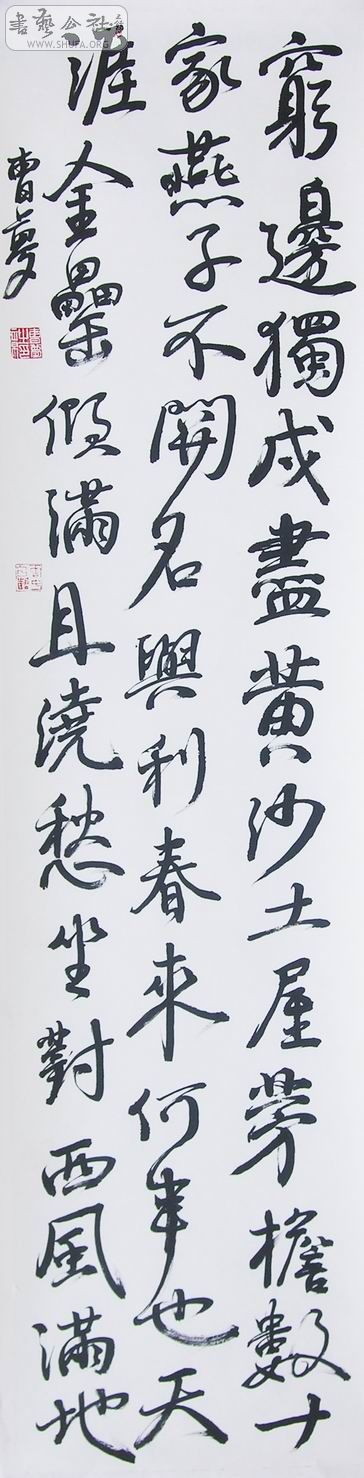 窮邊獨戍盡黄沙土屋茅檐數十
家燕子不關名與利春來何事也天
涯金罍傾滿且澆愁坐對西風滿地
曹夢
書藝公社
WWW.SHUFA.ORG